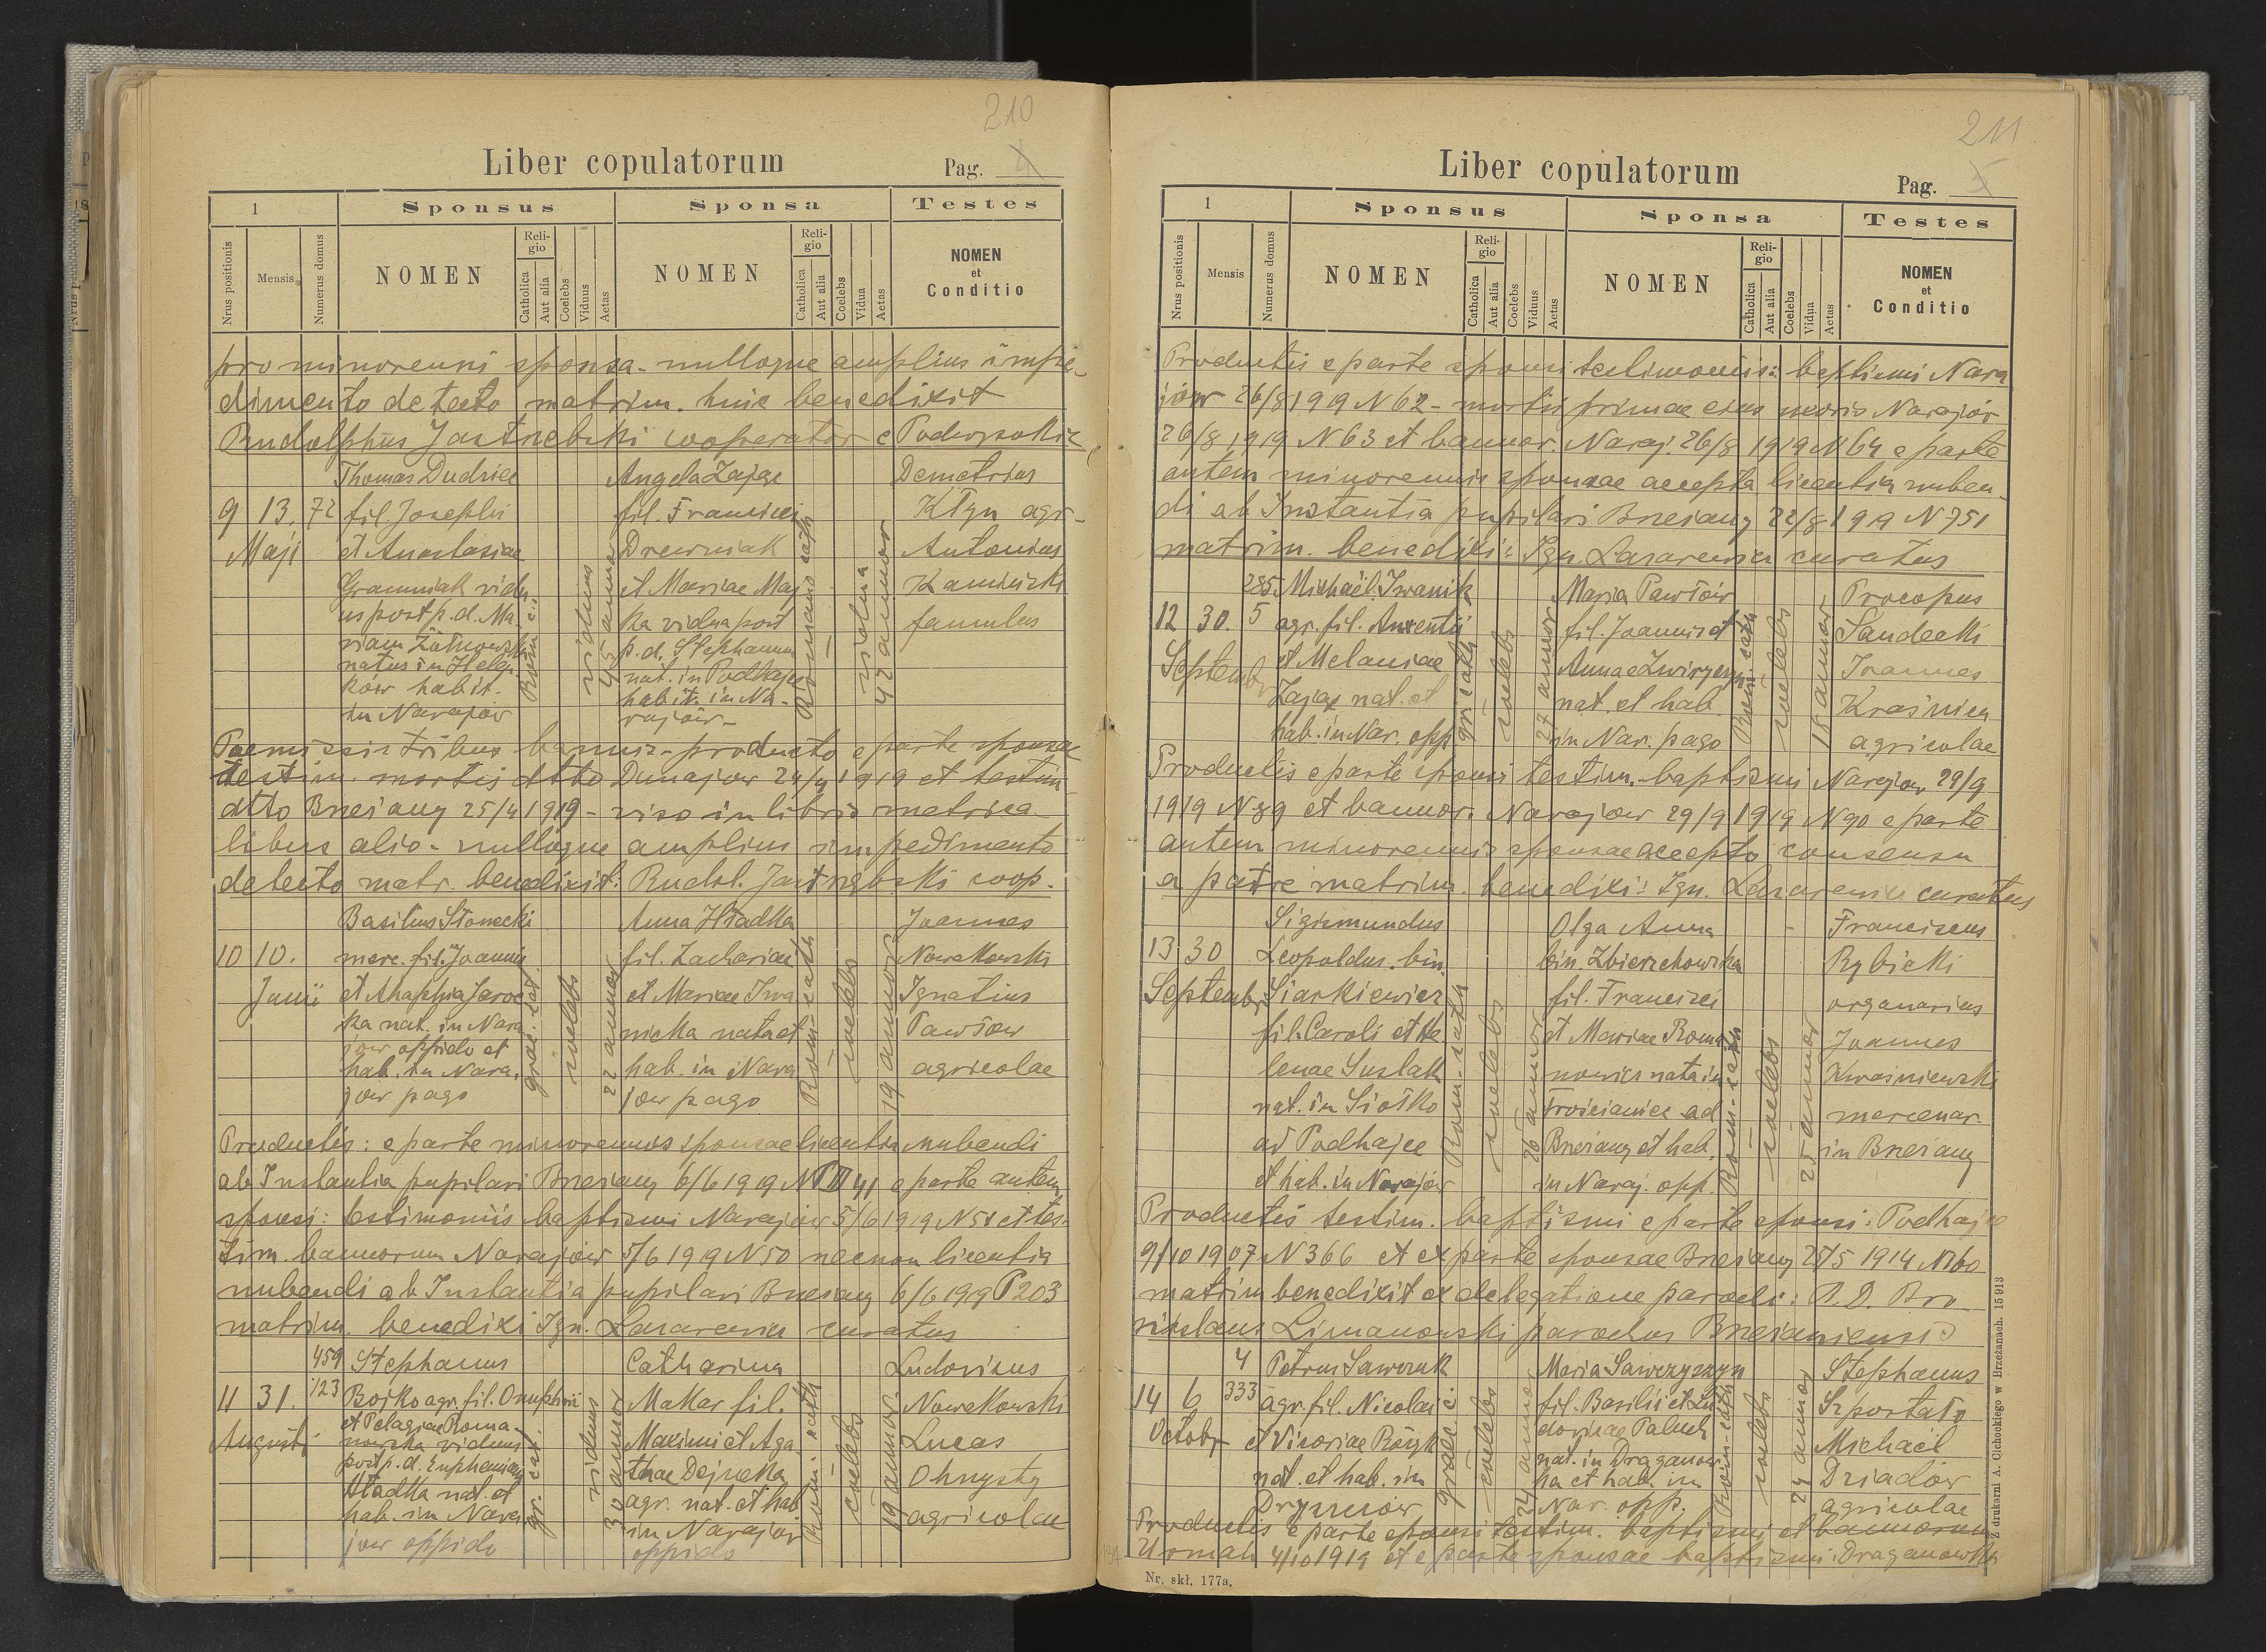 210
Liber copulatorum
Pag. 4
1
Sponsus
Sponsa
Testes
Nrus positionis
Mensis
Numerus domus
NOMEN
Religio
Catholica
Aut alia
Coelebs
Viduus
Aetas
NOMEN
Religio
Catholica
Aut alia
Coelebs
Vidua
Aetas
NOMEN
et
Conditio
pro minorenni sponsa - nulloque amplius impe-
dimento detecto matrim. huic benedixit
Rudolphus Jastrzebski cooperator e
Thomas Dudziec Angela Zając Demetrius
9 13. 72 fil. Josephi fil. Francisci agr-
Maji et Anastasiae Drewniak Antonius
vidu- et Mariae Maj Kaminski
us post p. d. Ma- ka vidua post famulus
riam p. d. Stephanum
natus in nat. in Podhajce
ków habit. habit. in Na-
in Narajów rajów-
viduus
45 annor
Romano cath
vidua
42 annor
Praemissis tribus bannis - producto e parte sponsae
testim. mortis dtto Dunajow 24/4 1919 et testim
dtto Brzeżany 25/4 1919 - viso in libris metrica-
libus alio - nulloque amplius impedimento
detecto matr. benedixit: Rudol. Jastrzębski coop.
Basilius Słonecki Anna Hładka Joannes
10 10. merc. fil. Joannis fil. Zachariae Nowakowski
Junii et Ahaphia Jaroc et Mariae Iwa Ignatius
ka nat. in Nara nicka nata et Pawłow
jow oppido et
hab. in Nara- hab. in Nara agricolae
jow pago jow pago
coelebs
22 annor
Rom-cath
coelebs
19 annor
Productis: e parte minorennis sponsae licentia nubendi
ab Instantia pupilari Brzeżany 6/6 1919 41 e parte autem
sponsi: testimoniis baptismi Narajów 5/6 1919 N 51 et tes-
tim. bannorum Narajów 5/6 1919 N 50 necnon licentia
nubendi ab Instantia pupilari Brzeżany 6/6 1919 P 203
matrim. benedixi Ign. Lazarewicz curatus
459 Stephanus Catharina Ludovicus
11 31. 123 Bojko agr. fil. Onuphrii Makar fil. Nowakowski
Augusti et Pelagiae Roma- Maximi et Aga- Lucas
nowska viduus thae Dejneka Ohnysty
post p. d. Euphemiam agr. nat. et hab agricolae
Hładka nat. et in Narajow
hab. in Nara oppido
jow oppido
gr. cat.
viduus
30 annor
Rom. cath
coelebs
19 annor.
211
Liber copulatorum
Pag. 5
1
Sponsus
Sponsa
Testes
Nrus positionis
Mensis
Numerus domus
NOMEN
Religio
Catholica
Aut alia
Coelebs
Viduus
Aetas
NOMEN
Religio
Catholica
Aut alia
Coelebs
Vidua
Aetas
NOMEN
et
Conditio
Productis e parte sponsi testimoniis: baptismi Nara
jów 26/8 1919 N 62 - mortis primae eius uxoris Narajów
26/8 1919 N 63 et bannor. Naraj. 26/8 1919 N 64 e parte
autem minorennis sponsae accepta licentia nuben-
di ab Instantia pupilari Brzeżany 22/8 1919 N 751
matrim. benedixi: Ign. Lazarewicz curatus
285 Michaël Iwanik Maria Pawłów Procopus
12 30. 5 agr. fil. Auxentii fil. Joannis et Sandecki
Septembr et Melaniae Annae Joannes
Zając nat. et nat. et hab. Kraśnica
hab. in Nar. opp. in Nar. pago agricolae
gr. cath
coelebs
27 annor
Rom. cath
coelebs
18 annor
Productis e parte sponsi testim. baptismi Narajow 29/9
1919 N 89 et bannor. Narajow 29/9 1919 N 90 e parte
autem minorennis sponsae accepto consensu
a patre matrim. benedixi: Ign. Lazarewicz curatus
Sigismundus Olga Anna Franciscus
13 30 Leopoldus. bin. bin. Zbierzchowska Rybicki
Septembr Siarkiewicz fil. Francisci organarius
fil. Caroli et He et Mariae Roma- Joannes
lenae Suslak nowicz nata in Kwaśniewski
nat. in Siołko ad mercenar.
ad Podhajce Brzeżany et hab. in Brzeżany
et hab. in Narajów in Naraj. opp.
Rom-cath
coelebs
26 annor
Rom-cath
coelebs
25 annor
Productis testim. baptismi e parte sponsi: Podhajce
9/10 1907 N 366 et ex parte sponsae Brzeżany 25/5 1914 N 160
matrim benedixit ex delegatione parochi: R. D. Bro
nislaus Limanowski parochus Brzeżaniensis
4 Petrus Sawczuk Maria Sawczyszyn Stephanus
14 6 333 agr. fil. Nicolai fil. Basilii et Lu Szportało
Octobr et Victoriae dovicae Paluch Michaël
nat. et hab. in nat. in Draganow- Dziadów
Dryszczów ka et hab. in agricolae
Nar. opp.
coelebs
24 annor
Rom-cath
coelebs
24 annor
Productis e parte sponsi testim. baptismi et bannorum
Urmań 4/10 1919 et e parte sponsae baptismi: Draganowka
Z drukarni A. Cichockiego w Brzeżanach. 15 913
Nr. skł. 177a.